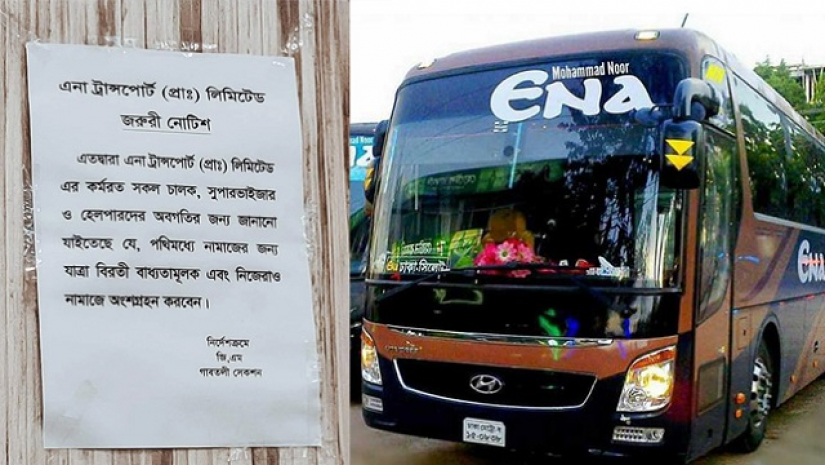 এনা ট্রান্সপোর্ট (প্রাঃ) লিমিটেড
জরুরী নোটিশ
এতদ্বারা এনা ট্রান্সপোর্ট (প্রাঃ) লিমিটেড
এর কর্মরত সকল চালক, সুপারভাইজার
ও হেলপারদের অবগতির জন্য জানানো
যাইতেছে যে, পথিমধ্যে নামাজের জন্য
যাত্রা বিরতী বাধ্যতামূলক এবং নিজেরাও
নামাজে অংশগ্রহন করবেন।
নির্দেশক্রমে
জি,এম
গাবতলী সেকশন
Mohammad Noor
ENA
ঢাকা-সিলেট
ENA
HYUNDAI
ঢাকা মেট্রো-ব
১৫-০৪৩৪